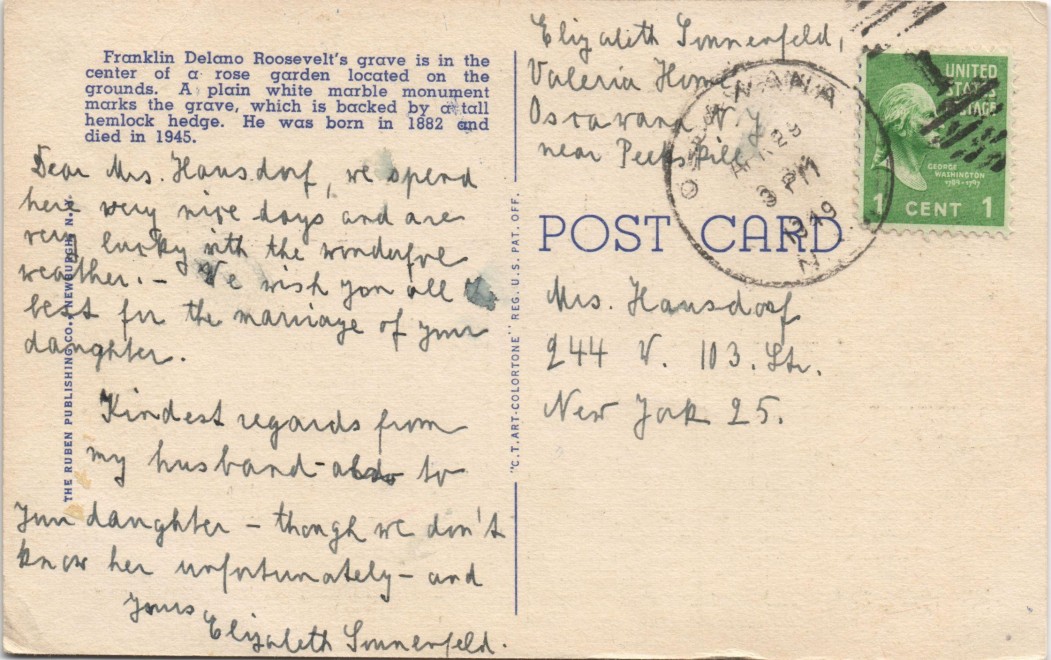 Franklin Delano Roosevelt's grave is in the
center of a rose garden located on the
grounds. A plain white marble monument
marks the grave, which is backed by a tall
hemlock hedge. He was born in 1882 and
died in 1945.
Dear Mrs. Hansdorf, we spend
here very nice days and are
very lucky with the wonderful
weather. – We wish you all the
best for the marriage of your
daughter.
Kindest regards from
my husband – also to
your daughter – though we don't
know her unfortunately – and
yours
Elizabeth Sonnenfeld.
THE RUBEN PUBLISHING CO., NEWBURGH, N.Y.
"C.T. ART-COLORTONE" REG. U.S. PAT. OFF.
Elizabeth Sonnenfeld,
Valeria Home
Oscawana N.Y.
near Peekskill
UNITED
STATES
POSTAGE
GEORGE
WASHINGTON
1789-1797
1 CENT 1
POST CARD
Mrs. Hansdorf
244 W. 103. Str.
New York 25.